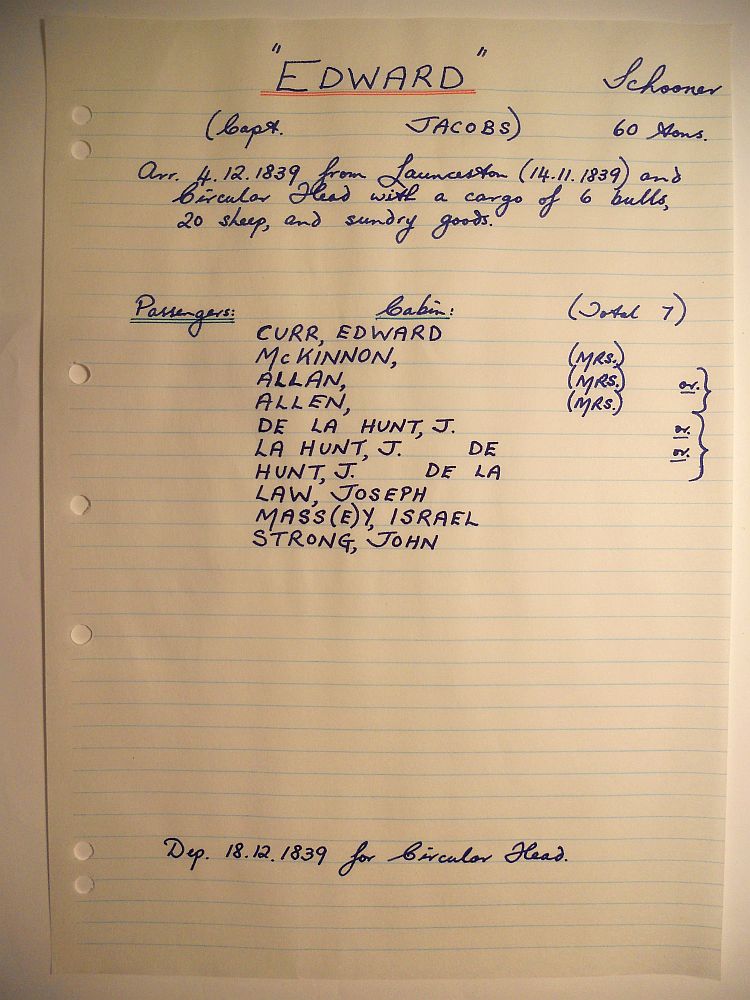 "EDWARD" Schooner
(Capt. JACOBS) 60 tons.
Arr. 4.12.1839 from Launceston (14.11.1839) and
Circular Head with a cargo of 6 bulls,
20 sheep, and sundry goods.
Passengers: Cabin: (Total 7)
CURR, EDWARD
McKINNON, (MRS.)
ALLAN, (MRS.) or.
ALLEN, (MRS.)
DE LA HUNT, J. or.
LA HUNT, J. DE or.
HUNT, J. DE LA
LAW, JOSEPH
MASS(E)Y, ISRAEL
STRONG, JOHN
Dep. 18.12.1839 for Circular Head.